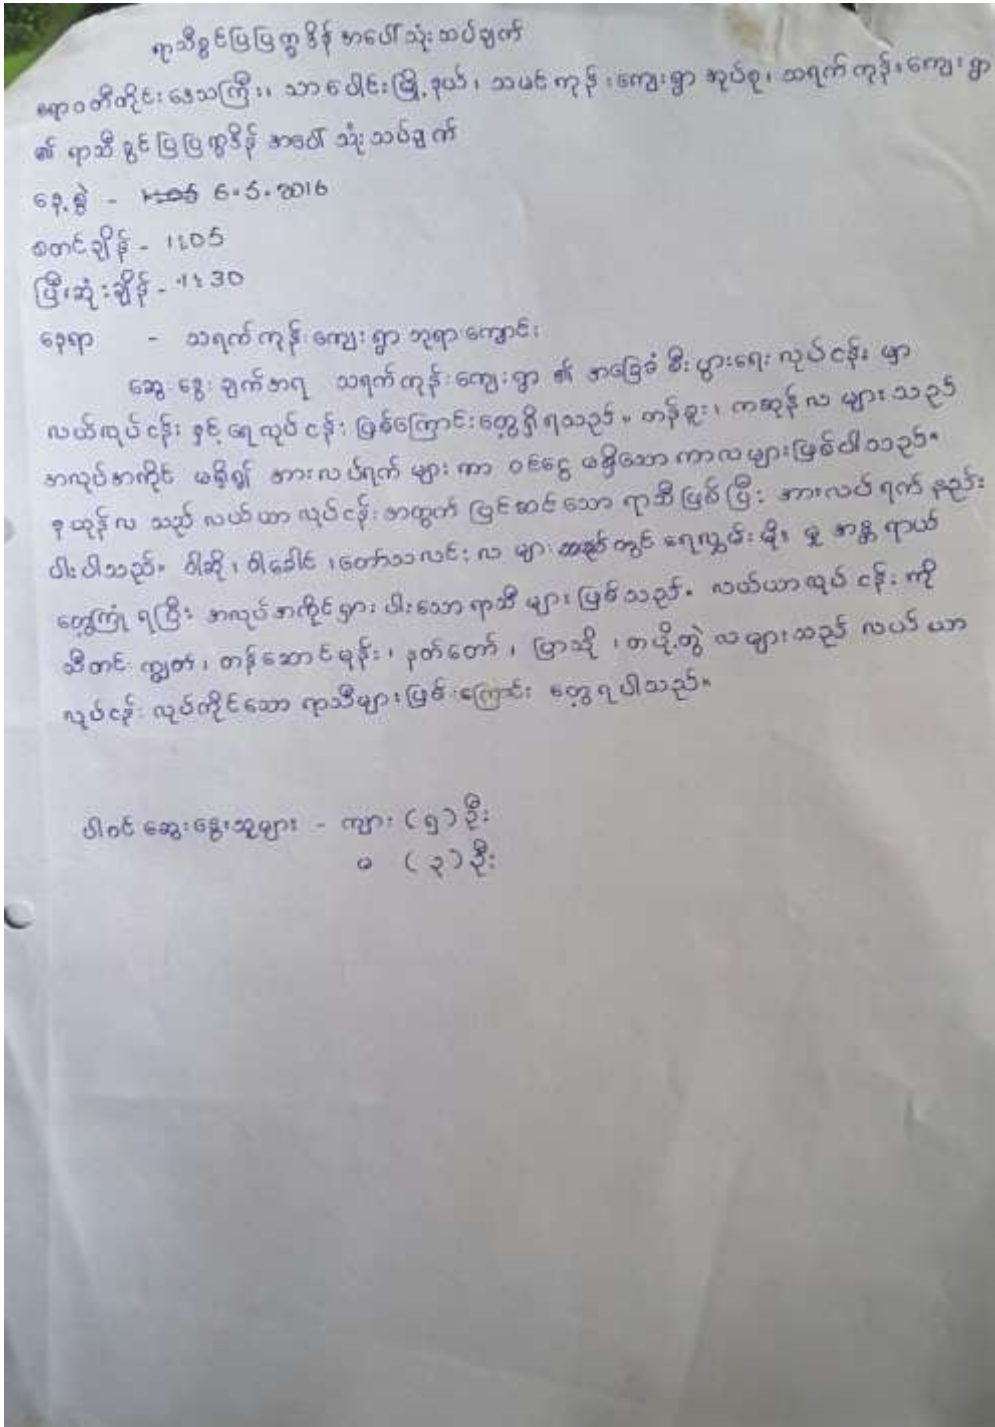 ရာသီခွင်ပြပြက္ခဒိန် အပေါ်သုံးသပ်ချက်
ဧရာဝတီတိုင်းဒေသကြီး၊ သာပေါင်းမြို့နယ်၊ သမင်ကုန်းကျေးရွာ အုပ်စု၊ သရက်ကုန်းကျေးရွာ
၏ ရာသီခွင်ပြပြက္ခဒိန် အပေါ် သုံးသပ်ချက်
နေ့စွဲ - 6.5.2016
စတင်ချိန် - 1:05
ပြီးဆုံးချိန် - 1:30
နေရာ - သရက်ကုန်းကျေးရွာ ဘုရားကျောင်း
ဆွေးနွေးချက်အရ သရက်ကုန်းကျေးရွာ ၏ အခြေခံ စီးပွားရေး လုပ်ငန်း မှာ
လယ်လုပ်ငန်း နှင့် ရေလုပ်ငန်း ဖြစ်ကြောင်းတွေ့ရှိရသည်။ တန်ခူး၊ ကဆုန်လ များသည်
အလုပ်အကိုင် မရှိ၍ အားလပ်ရက် များကာ ဝင်ငွေ မရှိသောကာလများဖြစ်ပါသည်။
နယုန်လ သည် လယ်ယာလုပ်ငန်းအတွက် ပြင်ဆင်သော ရာသီဖြစ်ပြီး အားလပ်ရက် နည်း
ပါးပါသည်။ ဝါဆို၊ ဝါခေါင်၊ တော်သလင်းလ များတွင် ရေလွှမ်းမိုးမှု အန္တရာယ်
တွေ့ကြုံရပြီး အလုပ်အကိုင်ရှားပါးသောရာသီများဖြစ်သည်။ လယ်ယာလုပ်ငန်းကို
သီတင်းကျွတ်၊ တန်ဆောင်မုန်း၊ နတ်တော်၊ ပြာသို၊ တပို့တွဲ လများသည် လယ်ယာ
လုပ်ငန်း လုပ်ကိုင်သော ရာသီများဖြစ်ကြောင်း တွေ့ရပါသည်။
ပါဝင်ဆွေးနွေးသူများ - ကျား (၅) ဦး
မ (၃) ဦး